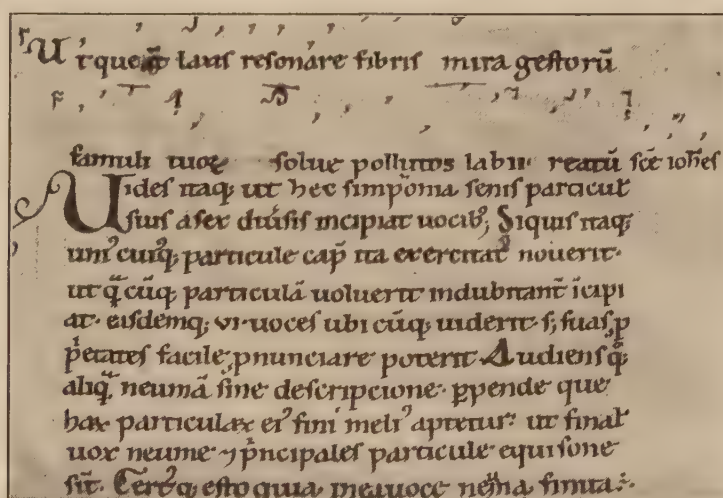 Ut queāt laxis resonare fibris mira gestorū
famuli tuoꝝ solue polluti labii reatū sc̄e ioh̄es
Uides itaq; ut hec simphonia senis particul̄
suis a sex diuˀsis incipiat uocibꝰ; Siquis itaq;
uniꝰ cuiꝰq; particule cap̄ ita exercitat̄ nouerit·
ut q̄cūq; particulā uoluerit indubitant̄ īcipi
at· eisdemq; vi· uoces ubi cūq; uiderit s; suas ꝓ
p̄etates facile ꝓnunciare poterit Audiensq̄
aliq̄ neumā sine descripcione· ꝑpende que
haꝝ particulaꝝ eiꝰ fini meliꝰ aptetur· ut final̄
uox neume ⁊ p̄ncipales particule equisone
sīt· Certꝰq; esto quia in ea uoce neuma finita·